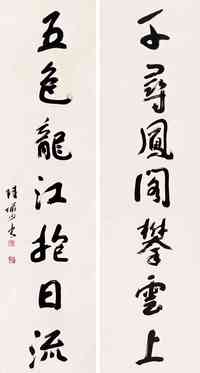 千尋鳳閣攀雲上
五色龍江抱日流